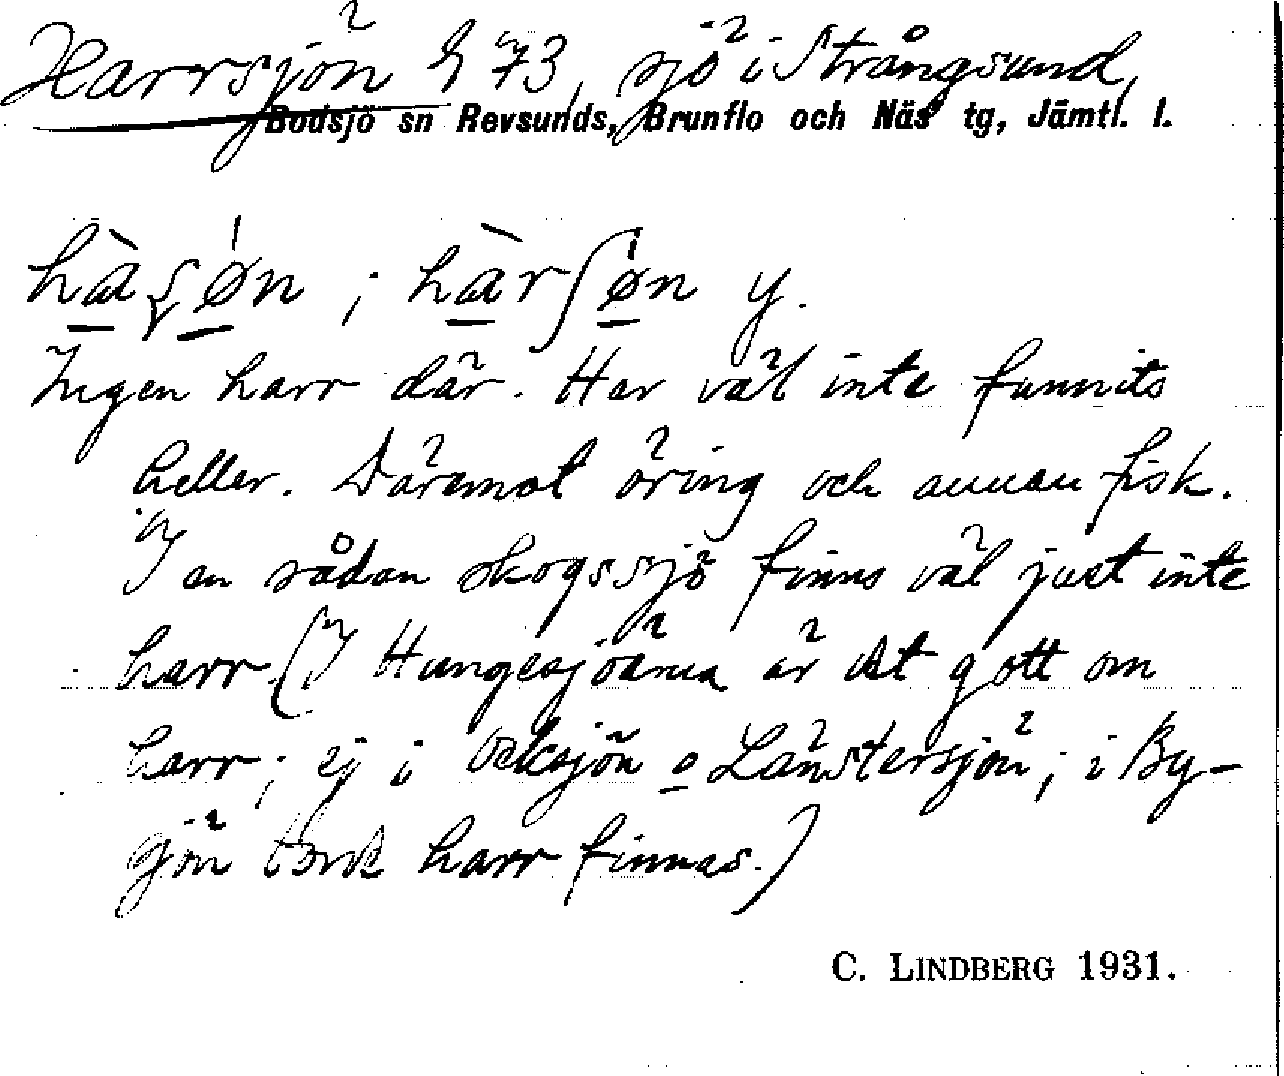 Harrsjön § 73, sjö i Strångsund,
Bodsjö sn Revsunds, Brunflo och Näs tg, Jämtl. l.
hàʂøn ; hàrʃøn y.
Ingen harr där. Har väl inte funnits
heller. Däremot öring och annan fisk.
I en sådan skogssjö finns väl just inte
harr (I Hungesjöarna är det gott om
harr; ej i Ocksjön o Länstersjön; i By-
sjön torde harr finnas.)
C. LINDBERG 1931.